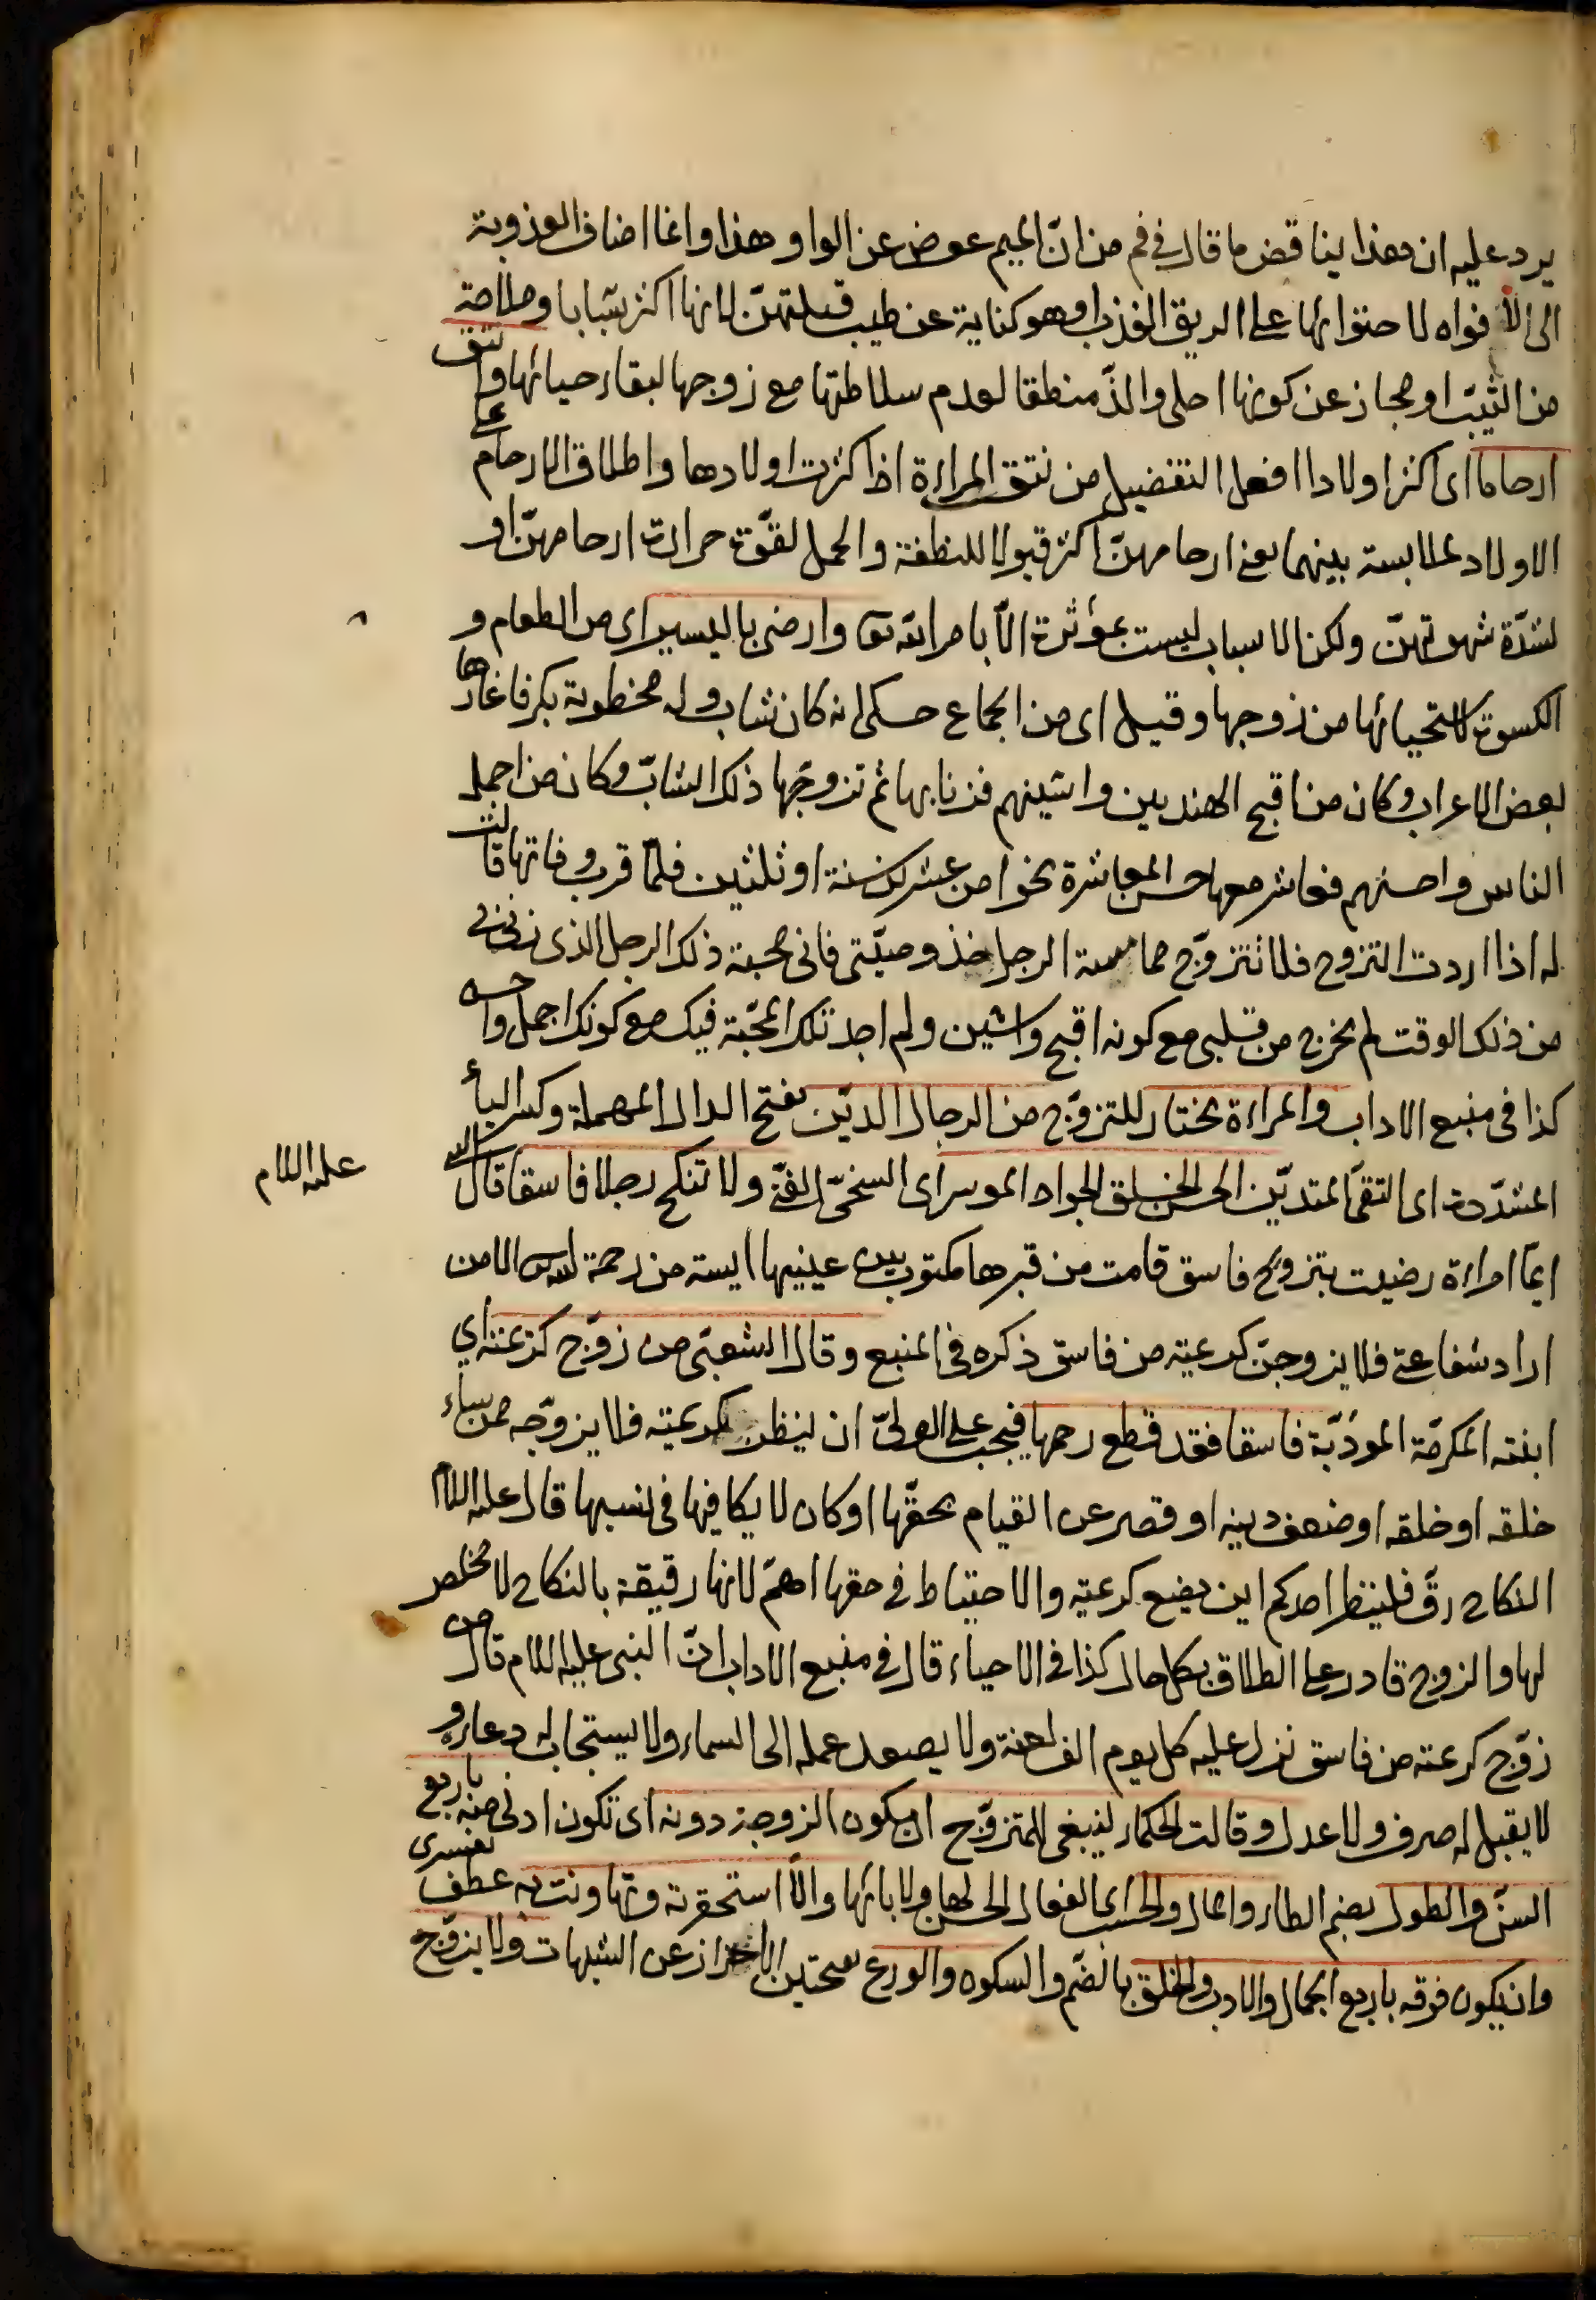 يرد عليه ان هذا يناقض ما قال في فم من انّ الميم عوض عن الواو هذا وانما اضاف العذوبة
الى الأفواه لاحتوائها على الريق العذب وهو كناية عن طيب قبلتهنّ لانها اكثر شبابا وملاحة
من الثيّب او مجاز عن كونها احلى والذّ منطقا لعدم سلاطتها مع زوجها لبقاء حيائها وانتق
ارحاما اى اكثر اولادا افعل التفضيل من نتق المراءة اذا كثرت اولادها واطلاق الارحام على
الاولاد لملابسة بينهما يعنى ارحامهنّ اكثر قبولا للنطفة والحمل لقوّة حرارة ارحامهنّ او
لشدّة شهوتهنّ ولكن الاسباب ليست بمؤثرة الّا بامر الله تعا وارضى باليسير اى من الطعام و
الكسوة لاستحيائها من زوجها وقيل اى من الجماع حكى انه كان شاب وله مخطوبة بكر فاغارها
بعض الاعراب وكان من اقبح الهنديين واشينهم فزنا بها ثم تزوجّها ذلك الشابّ وكان من اجمل
الناس واحسنهم فعاشر معها حسن المعاشرة نحوا من عشرين سنة او ثلثين فلمّا قرب وفاتها قالت
له اذا اردت التزوج فلا تتزوّج مما مسه الرجل خذ وصيّتى فانى محبة ذلك الرجل الذى زنى بى
من ذلك الوقت لم يخرج من قلبى مع كونه اقبح واشين ولم اجد تلك المحبّة فيك مع كونك اجمل واحسن
كذا فى منبع الاداب والمراءة تختار للتزوّج من الرجال الديّن بفتح الدال المهملة وكسر اليأ
المشدّدة اى التقىّ المتديّن الحسن الخلق الجواد الموسر اى السخىّ الغنّى ولا تنكح رجلا فاسقا قال النبى
عليه السلام
ايّما امراءة رضيت بتزوّج فاسق قامت من قبرها مكتوب بين عينيها ايسة من رحمة الله الا من
اراد شفاعتى فلا يزوجنّ كريمته من فاسق ذكره فى المنبع وقال الشعبّى من زوّج كريمته اي
ابنته المكرمّة المودّبة فاسقا فقد قطع رحمها فيجب على الولىّ ان ينظر لكريمته فلا يزوّجه ممن ساء
خلقه او خلقه او ضعف دينه او قصر عن القيام بحقّها او كان لا يكافيها فى نسبها قال عليه السلام
النكاح رقّ فلينظر احدكم اين يضع كريمته والاحتياط فى حقها اهمّ لانها رقيقة بالنكاح لا مخلص
لها والزوج قادر على الطلاق بكل حال كذا فى الاحياء قال فى منبع الاداب انّ النبى عليه السلام قال من
زوّج كريمته من فاسق نزل عليه كل يوم الف لعنة ولا يصعد عمله الى السماء ولا يستجاب له دعاؤه و
لا يقبل له صرف ولا عدل وقالت الحكماء ينبغى للمتزوّج ان يكون الزوجة دونه اى تكون ادنى منه باربع
السنّ والطول بضم الطاء والمال والحسب اى الفعال الحسن لها ولابائها والّا استحقرته وتهاونت به عطف تفسيرى
وان يكون فوقه باربع الجمال والادب والخلق بالضّم والسكون والورع بفتحتين الاحتراز عن الشبهات ولا يزوّج